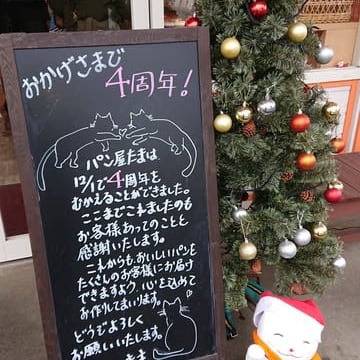 おかげさまで
4周年!
パン屋たまは
12/1で4周年を
むかえることができました。
ここまでこれましたのも
お客様あってのことと
感謝いたします。
これからも、おいしいパンを
たくさんのお客様にお届け
できますよう、心を込めて
お作りしてまいります。
どうぞよろしく
お願いいたします。